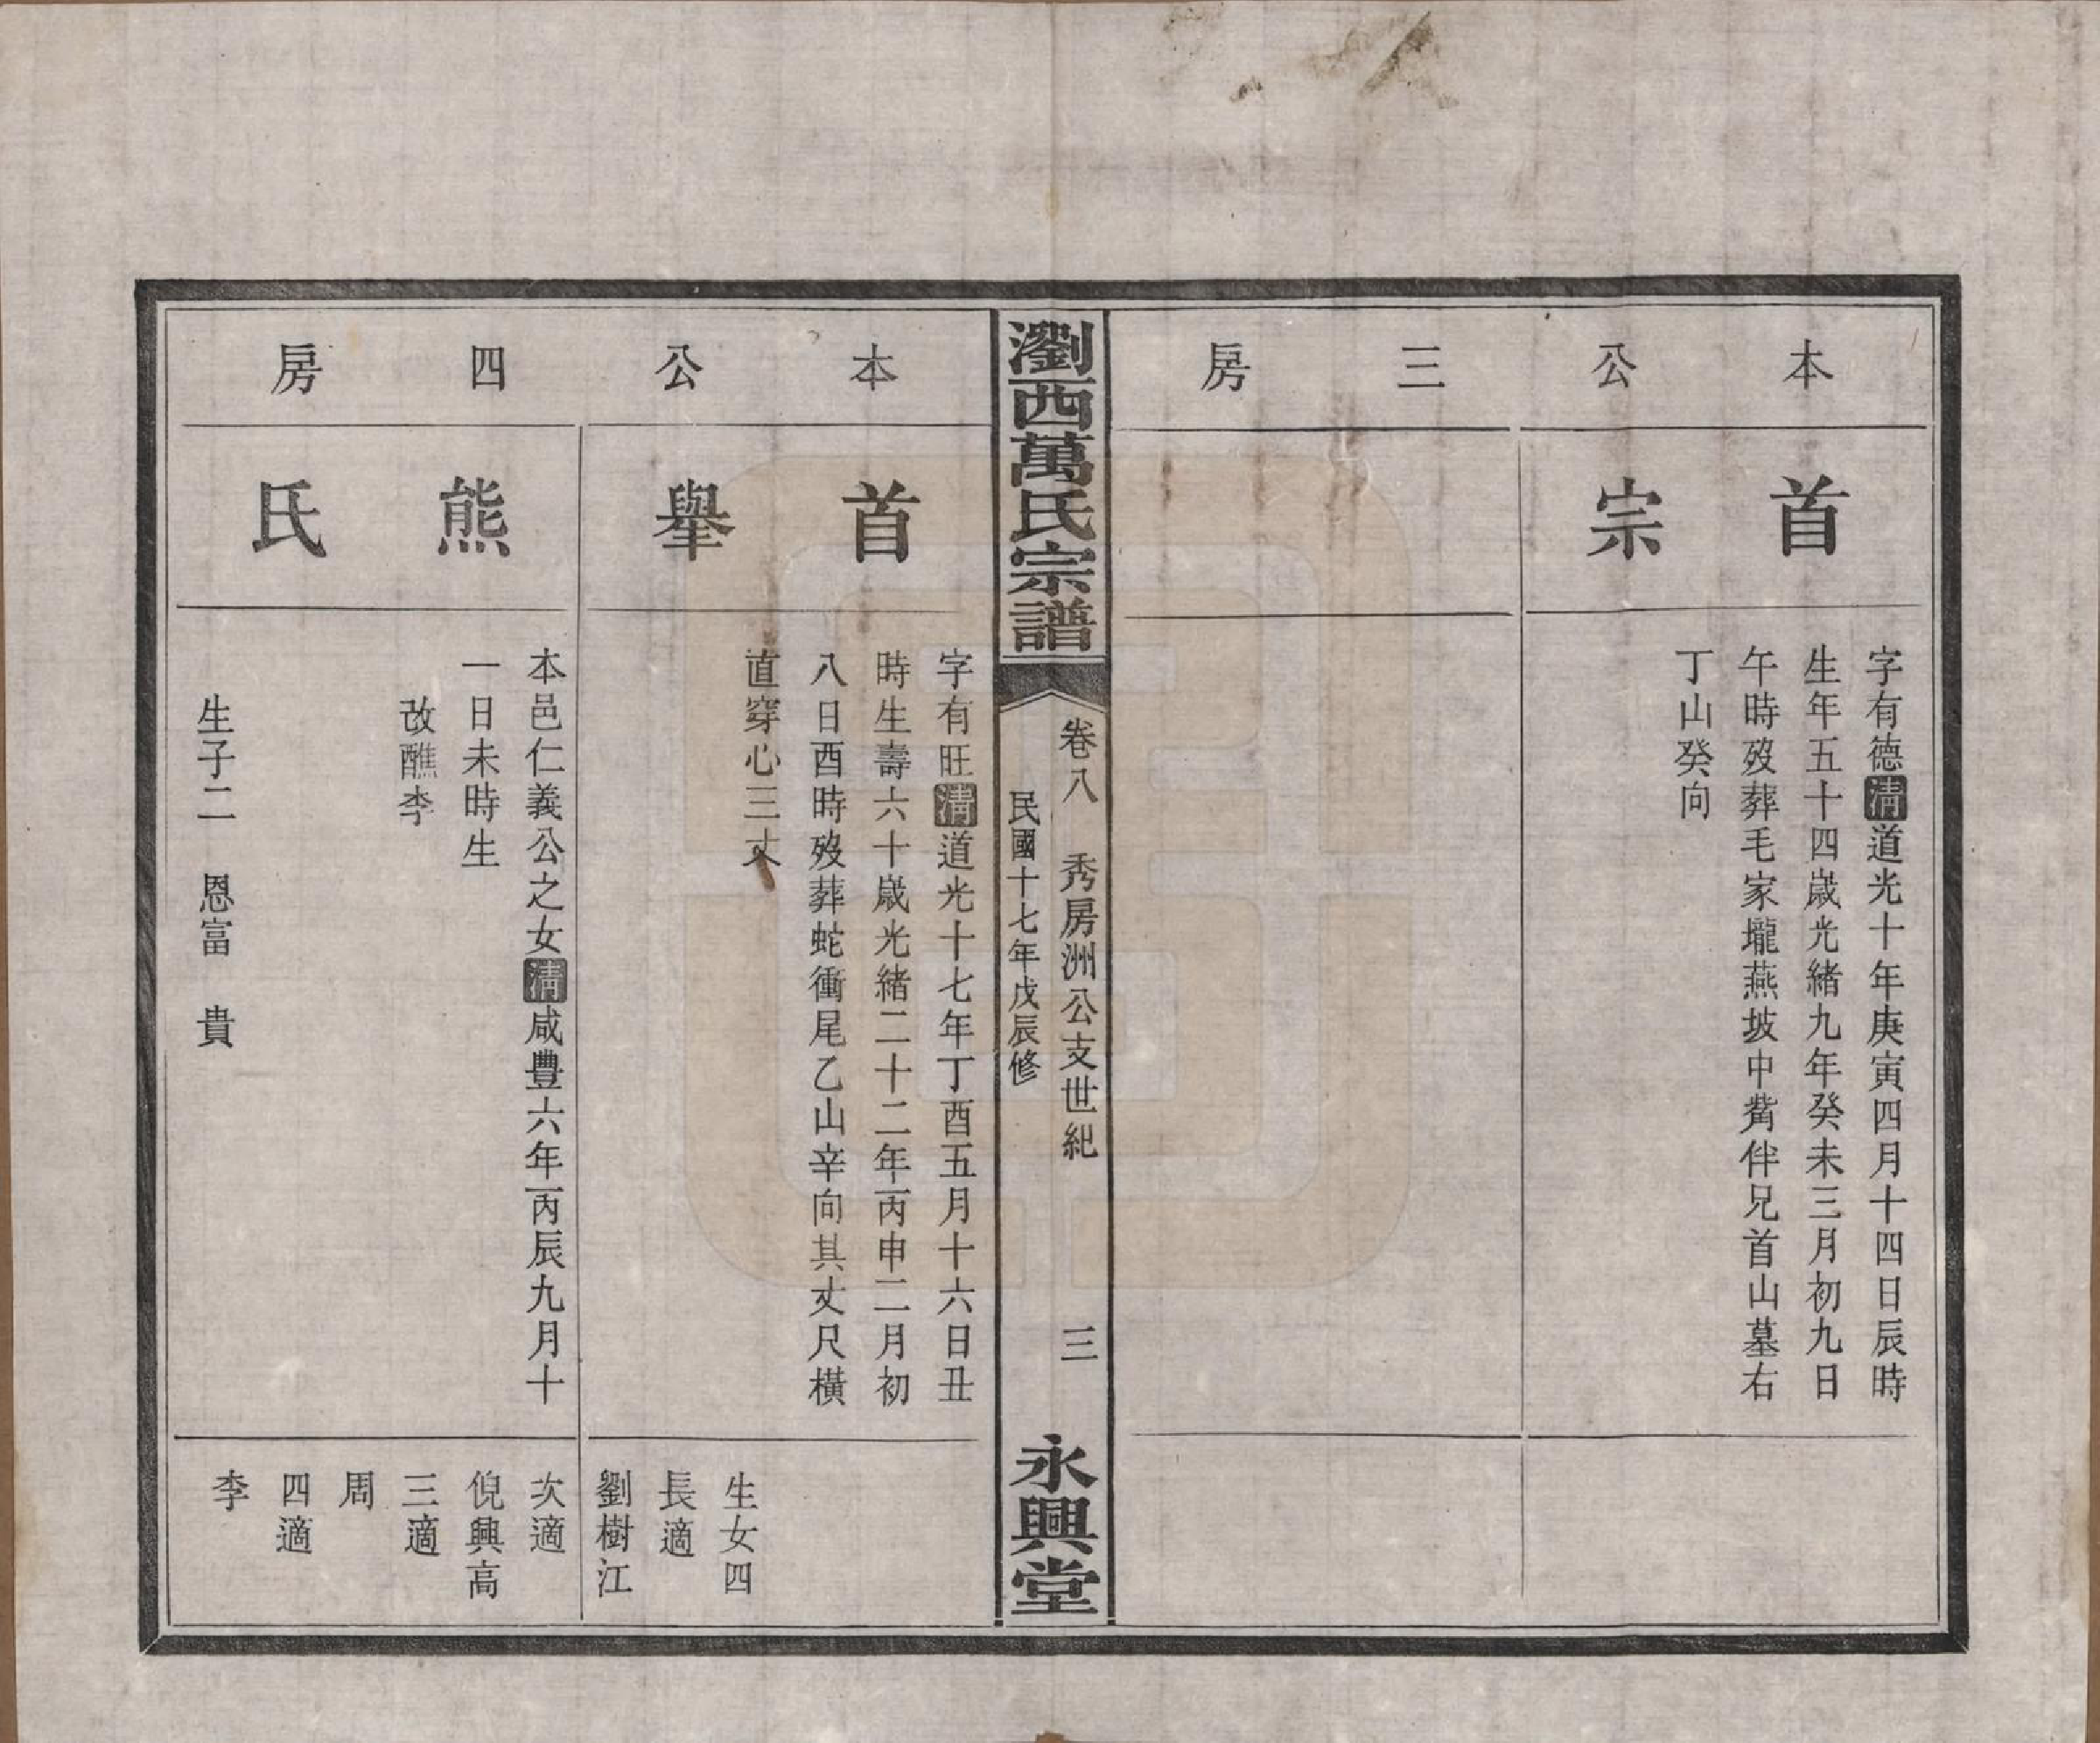 本公三房
首宗
字有德清道光十年庚寅四月十四日辰時
生年五十四歲光緒九年癸未三月初九日
午時歿葬毛家壠燕坡中觜伴兄首山墓右
丁山癸向
瀏西萬氏宗譜
卷八 秀房洲公支世紀 三
民國十七年戊辰修
永興堂
本公四房
首舉
字有旺清道光十七年丁酉五月十六日丑
時生壽六十歲光緒二十二年丙申二月初
八日酉時歿葬蛇衝尾乙山辛向其丈尺橫
直穿心三丈
生女四
長適
劉樹江
熊氏
本邑仁義公之女清咸豐六年丙辰九月十
一日未時生
改醮李
生子二 恩富 貴
次適
倪興高
三適
周
四適
李